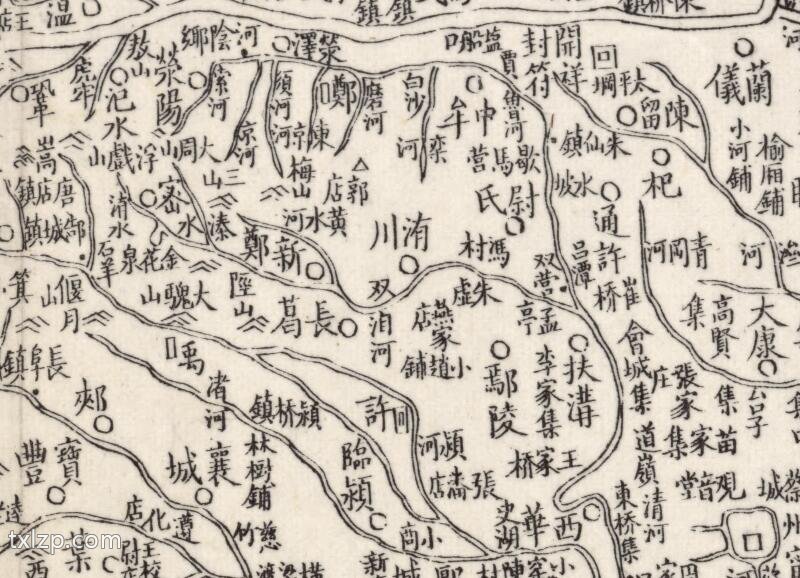 溫
鎮
鎮
河陰
滎澤
滎陽
敖山
虎牢
汜水
鞏
索河
須河
京河
鄭
磨河
白沙河
欒
中牟
鹽船口
賈魯河
封符
開祥
太平堈
陳留
蘭儀
小河鋪
榆廂鋪
朱仙鎮
水坡
杞
歇馬營
尉氏
通許
呂潭
崔橋
青岡河
高賢集
大康
大周山
浮戲山
三山
梅山
郭店
黃水河
密
溱水
洧水
嵩
唐
石羊
金花泉
大騩山
新鄭
陘山
洧川
馮村
雙營
朱
雙洎河
長葛
燕家店
小趙鋪
孟亭
李家集
王家橋
鄢陵
扶溝
會城集
張家莊
苗家集
觀音堂
道嶺
清河
東橋集
台子
偃月山
箕
禹
渚河
長阜鎮
郟
寶豐
襄城
潁橋鎮
林樹鋪
許
潁河
臨潁
張潘店
小商
西華
史湖
遵化店
慈
竹
陳村
新
城
蔡州
西
txlzp.com